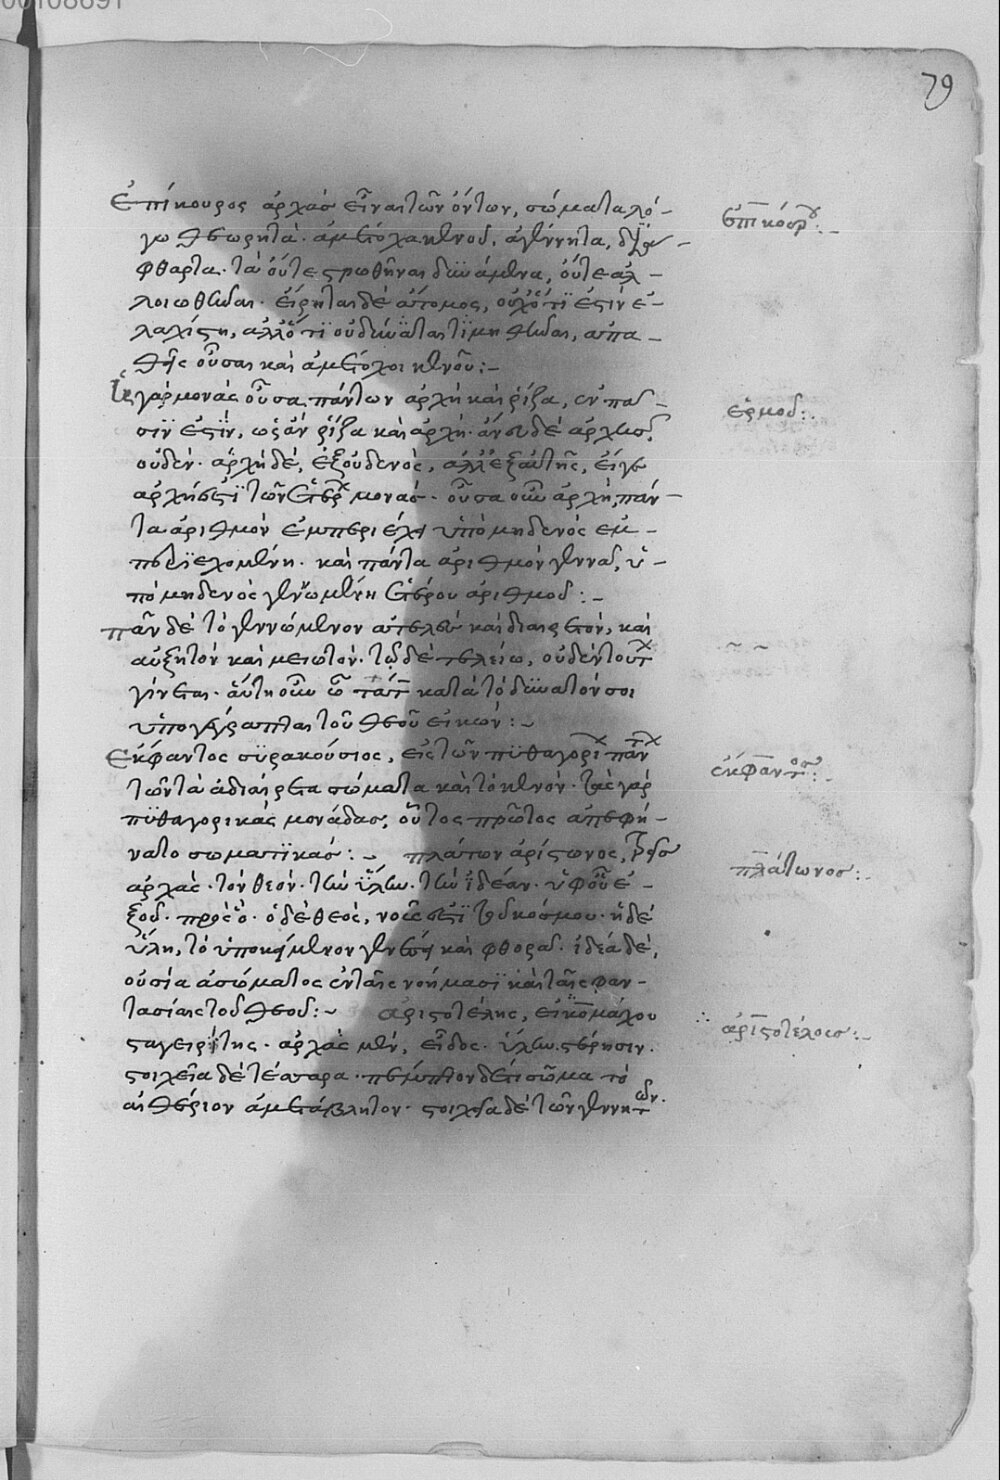 00108691
79
Ἐπίκουρος ἀρχὰς εἶναι τῶν ὄντων, σώματα λό-
γω θεωρητὰ. ἀμέτοχα κενοῦ, ἀγέννητα, ἀδιά-
φθαρτα. τὰ οὔτε θρωθῆναι δυνάμενα, οὔτε ἀλ-
λοιωθῆναι. εἴρηται δὲ ἄτομος, οὐχ ὅτι ἐστὶν ἐ-
λαχίστη, ἀλλ' ὅτι οὐ δύναται τμηθῆναι, ἀπα-
θὴς οὖσα καὶ ἀμέτοχος κενοῦ:-
Ἡ γὰρ μονὰς οὖσα πάντων ἀρχὴ καὶ ῥίζα, ἐν πᾶ-
σιν ἐστὶν, ὡς ἂν ῥίζα καὶ ἀρχὴ. ἄνευ δὲ ἀρχῆς,
οὐδὲν. ἀρχὴ δὲ, ἐξ οὐδενὸς, ἀλλ' ἐξ αὐτῆς, εἴγε
ἀρχή ἐστι τῶν ἑτέρων μονὰς. οὖσα οὖν ἀρχὴ, πάν-
τα ἀριθμὸν ἐμπεριέχει ὑπὸ μηδενὸς ἐμ-
περιεχομένη. καὶ πάντα ἀριθμὸν γεννᾶ, ὑ-
πὸ μηδενὸς γεννωμένη ἑτέρου ἀριθμοῦ:-
πᾶν δὲ τὸ γεννώμενον ἀτελὲς καὶ διαιρετόν, καὶ
αὐξητὸν καὶ μειωτόν. τῷ δὲ τελείω, οὐδὲν τούτων
γίνεται. αὕτη οὖν ὦ τὰτ κατὰ τὸ δυνατόν σοι
ὑπογέγραπται τοῦ θεοῦ εἰκών:-
Ἔκφαντος συρακούσιος, εἷς τῶν πυθαγορείων πάν-
των τὰ ἀδιαίρετα σώματα καὶ τὸ κενὸν. τὰς γὰρ
πυθαγορικὰς μονάδας, οὗτος πρῶτος ἀπεφή-
νατο σωματικάς:- πλάτων ἀρίστωνος, τρεῖς
ἀρχὰς. τὸν θεὸν. τὴν ὕλην. τὴν ἰδέαν. ὑφ' οὗ ἐ-
ξ οὗ. πρὸς ὃ. ὁ δὲ θεὸς, νοῦς ἐστι τοῦ κόσμου. ἡ δὲ
ὕλη, τὸ ὑποκείμενον γενέσει καὶ φθορᾶ. ἰδέα δὲ,
οὐσία ἀσώματος ἐν ταῖς νοήμασι καὶ ταῖς φαν-
τασίαις τοῦ θεοῦ:- ἀριστοτέλης, εἰκομάχου
σταγειρίτης. ἀρχὰς μὲν, εἶδος. ὕλην. στέρησιν.
στοιχεῖα δὲ τέσσαρα. πέμπτον δέ τι σῶμα τὸ
αἰθέριον ἀμετάβλητον. στοιχεῖα δὲ τῶν γεννητῶν.
ἐπικούρου:-
ἑρμοῦ:.
ἐκφάντου:.
πλάτωνος:-
ἀριστοτέλους:-